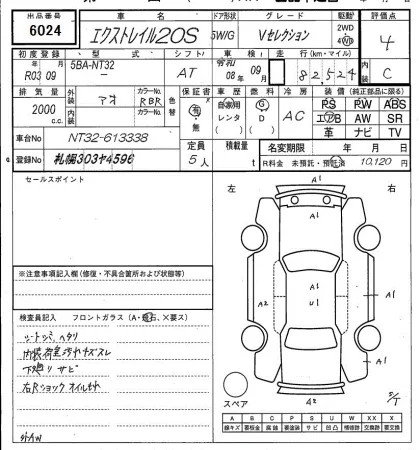 出品番号 車名 ドア形状 グレード 駆動 評価点
6024 エクストレイル20S 5W/G Vセレクション 2WD 4WD 4
初度登録 型式 シフト 車検 走行(km・マイル) 内装
R03年09月 5BA-NT32 AT 08年09月 82,524 C
排気量 外装 カラーNo. 色替 保証書 車歴 燃料 冷房 装備(純正部品に限る)
2000c.c. アオ RBR 有・無 自家用 レンタ G D AC PS PW ABS
内装 カラーNo. エアB AW SR
革 ナビ TV
車台No NT32-613338 定員 積載量 名変期限 年 月 日
登録No 札幌303ナ4596 5人 t R料金 未預託・預託済 10,120円
セールスポイント
左 右
A1
A1
A1
A2 U1 A1
A1
スペア A2
※注意事項記入欄(修復・不具合箇所および状態等)
検査員記入 フロントガラス(A・飛石、×要ス)
シートシミ、ヘタリ
内装荷室汚れキズスレ
下廻リサビ
右Rショックオイルモレ
A B C P S U W X XX
線キズ 要板金 腐蝕 要塗装 サビ 凹凸 補修跡 要交換 交換済